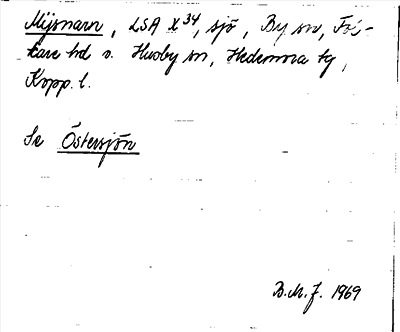 Mijsmarn, LSA X 34, sjö, By sn, Fol-
kare hd o. Husby sn, Hedemora tg,
Kopp. l.
Se Östersjön
B.M.J. 1969